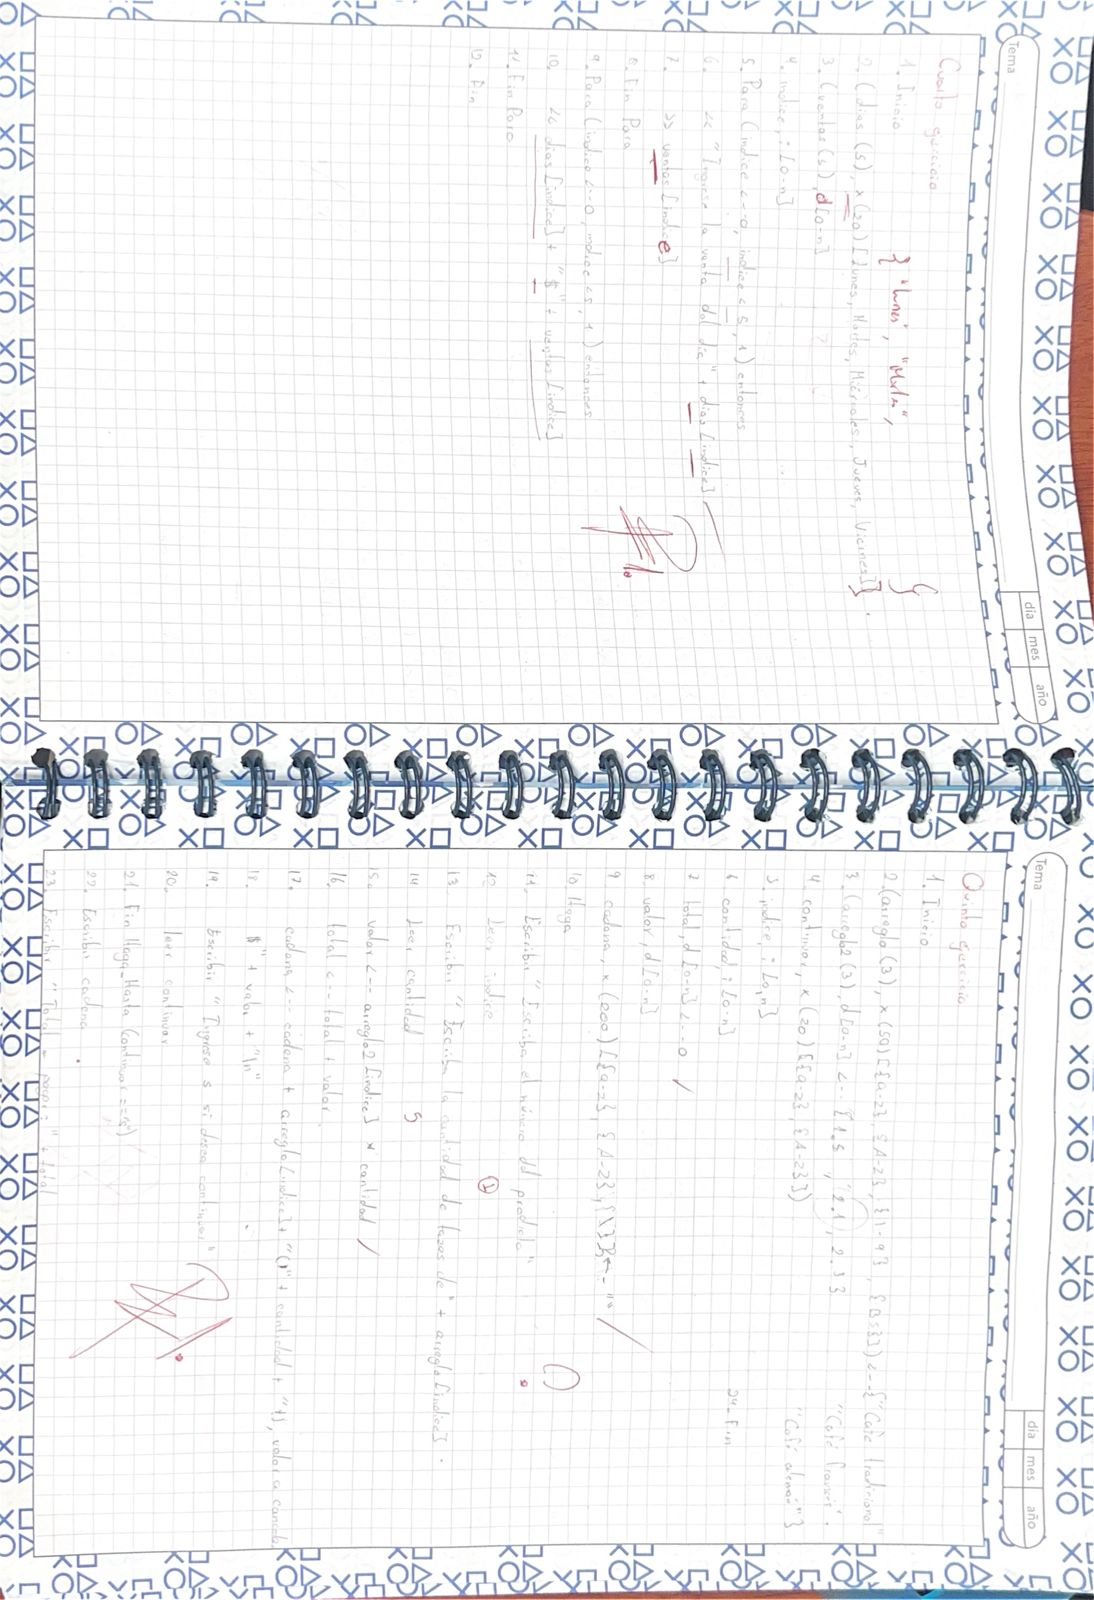 Tema
día mes año
Cuarto ejercicio
{ "lunes", "Martes", }
1. Inicio
2. (dias (5), x (20) [Lunes, Martes, Miércoles, Jueves, Viernes]}.
3. (ventas (5), d[0-n]
4. indice, : [0-n]
5. Para (indice <-- 0, indice < 5, 1) entonces
6. << "Ingrese la venta del día" + dias [indice]
7. >> ventas [indice]
8. Fin Para
9. Para (indice <-- 0, indice < 5, 1) entonces
10. << dias [indice] + "$" + ventas [indice]
11. Fin Para
12. Fin
Tema
día mes año
Quinto ejercicio
1. Inicio
2. (arreglo (3), x (50) [{a-z}, {A-Z}, {1-9}, {$}]) <--{"Café tradicional"
"Café francés".
"Café alemán"}
3. (arreglo2 (3), d [0-n] <-- {1.5, 2.1, 2.33
4. continuar, x (20) [{a-z}, {A-Z}])
5. indice : [0,n]
6. cantidad, : [0-n]
7. total, d [0-n] <-- 0
8. valor, d [0-n]
9. cadena, x (200) [{a-z}, {A-Z}, {\}] <-- ""
10. Haga
11. Escribir "Escriba el número del producto"
12. Leer indice
13. Escribir "Escriba la cantidad de tazas de" + arreglo [indice].
14. Leer cantidad
15. valor <-- arreglo2 [indice] * cantidad
16. total <-- total + valor
17. cadena <-- cadena + arreglo [indice] + "(" + cantidad + "), valor a cancelar
18. $" + valor + "\n"
19. Escribir "Ingrese s si desea continuar"
20. leer continuar
21. Fin Haga-Hasta (continuar == "s")
22. Escribir cadena
23. Escribir "Total a pagar: " + total
24. Fin